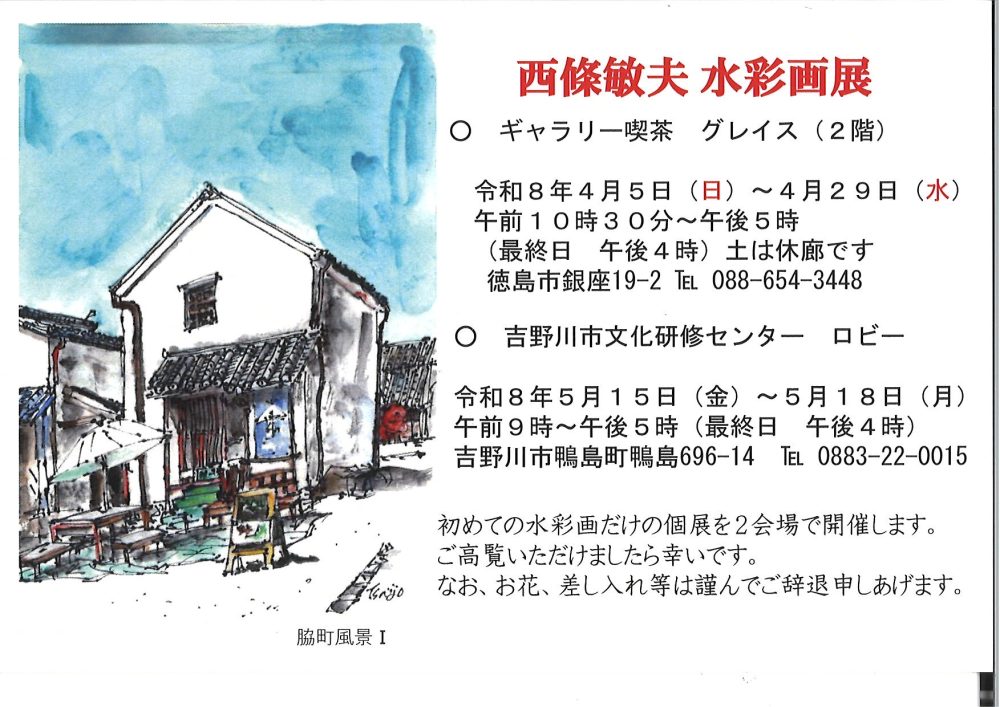 西條敏夫 水彩画展
○　ギャラリー喫茶　グレイス（２階）
令和８年４月５日（日）～４月２９日（水）
午前１０時３０分～午後５時
（最終日　午後４時）土は休廊です
徳島市銀座19-2 ℡ 088-654-3448
○　吉野川市文化研修センター　ロビー
令和８年５月１５日（金）～５月１８日（月）
午前９時～午後５時（最終日　午後４時）
吉野川市鴨島町鴨島696-14　℡ 0883-22-0015
初めての水彩画だけの個展を２会場で開催します。
ご高覧いただけましたら幸いです。
なお、お花、差し入れ等は謹んでご辞退申しあげます。
脇町風景Ⅰ